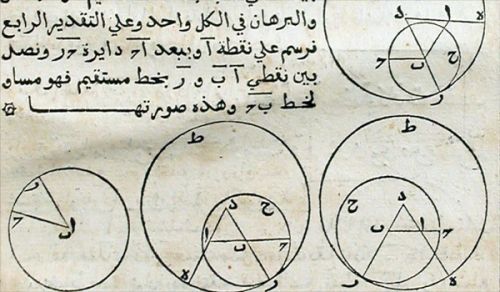 والبرهان في الكل واحد وعلي التقدير الرابع
فنرسم علي نقطة ا وببعد اح دايرة حر ونصل
بين نقطي اب و ر بخط مستقيم فهو مساو
لخط بح وهذه صورتها
د ا ه
ح ب ح
ر
ط ط
ر د ح ح د
ح ا ا ب ح ب ا ح
ه ر ر ه